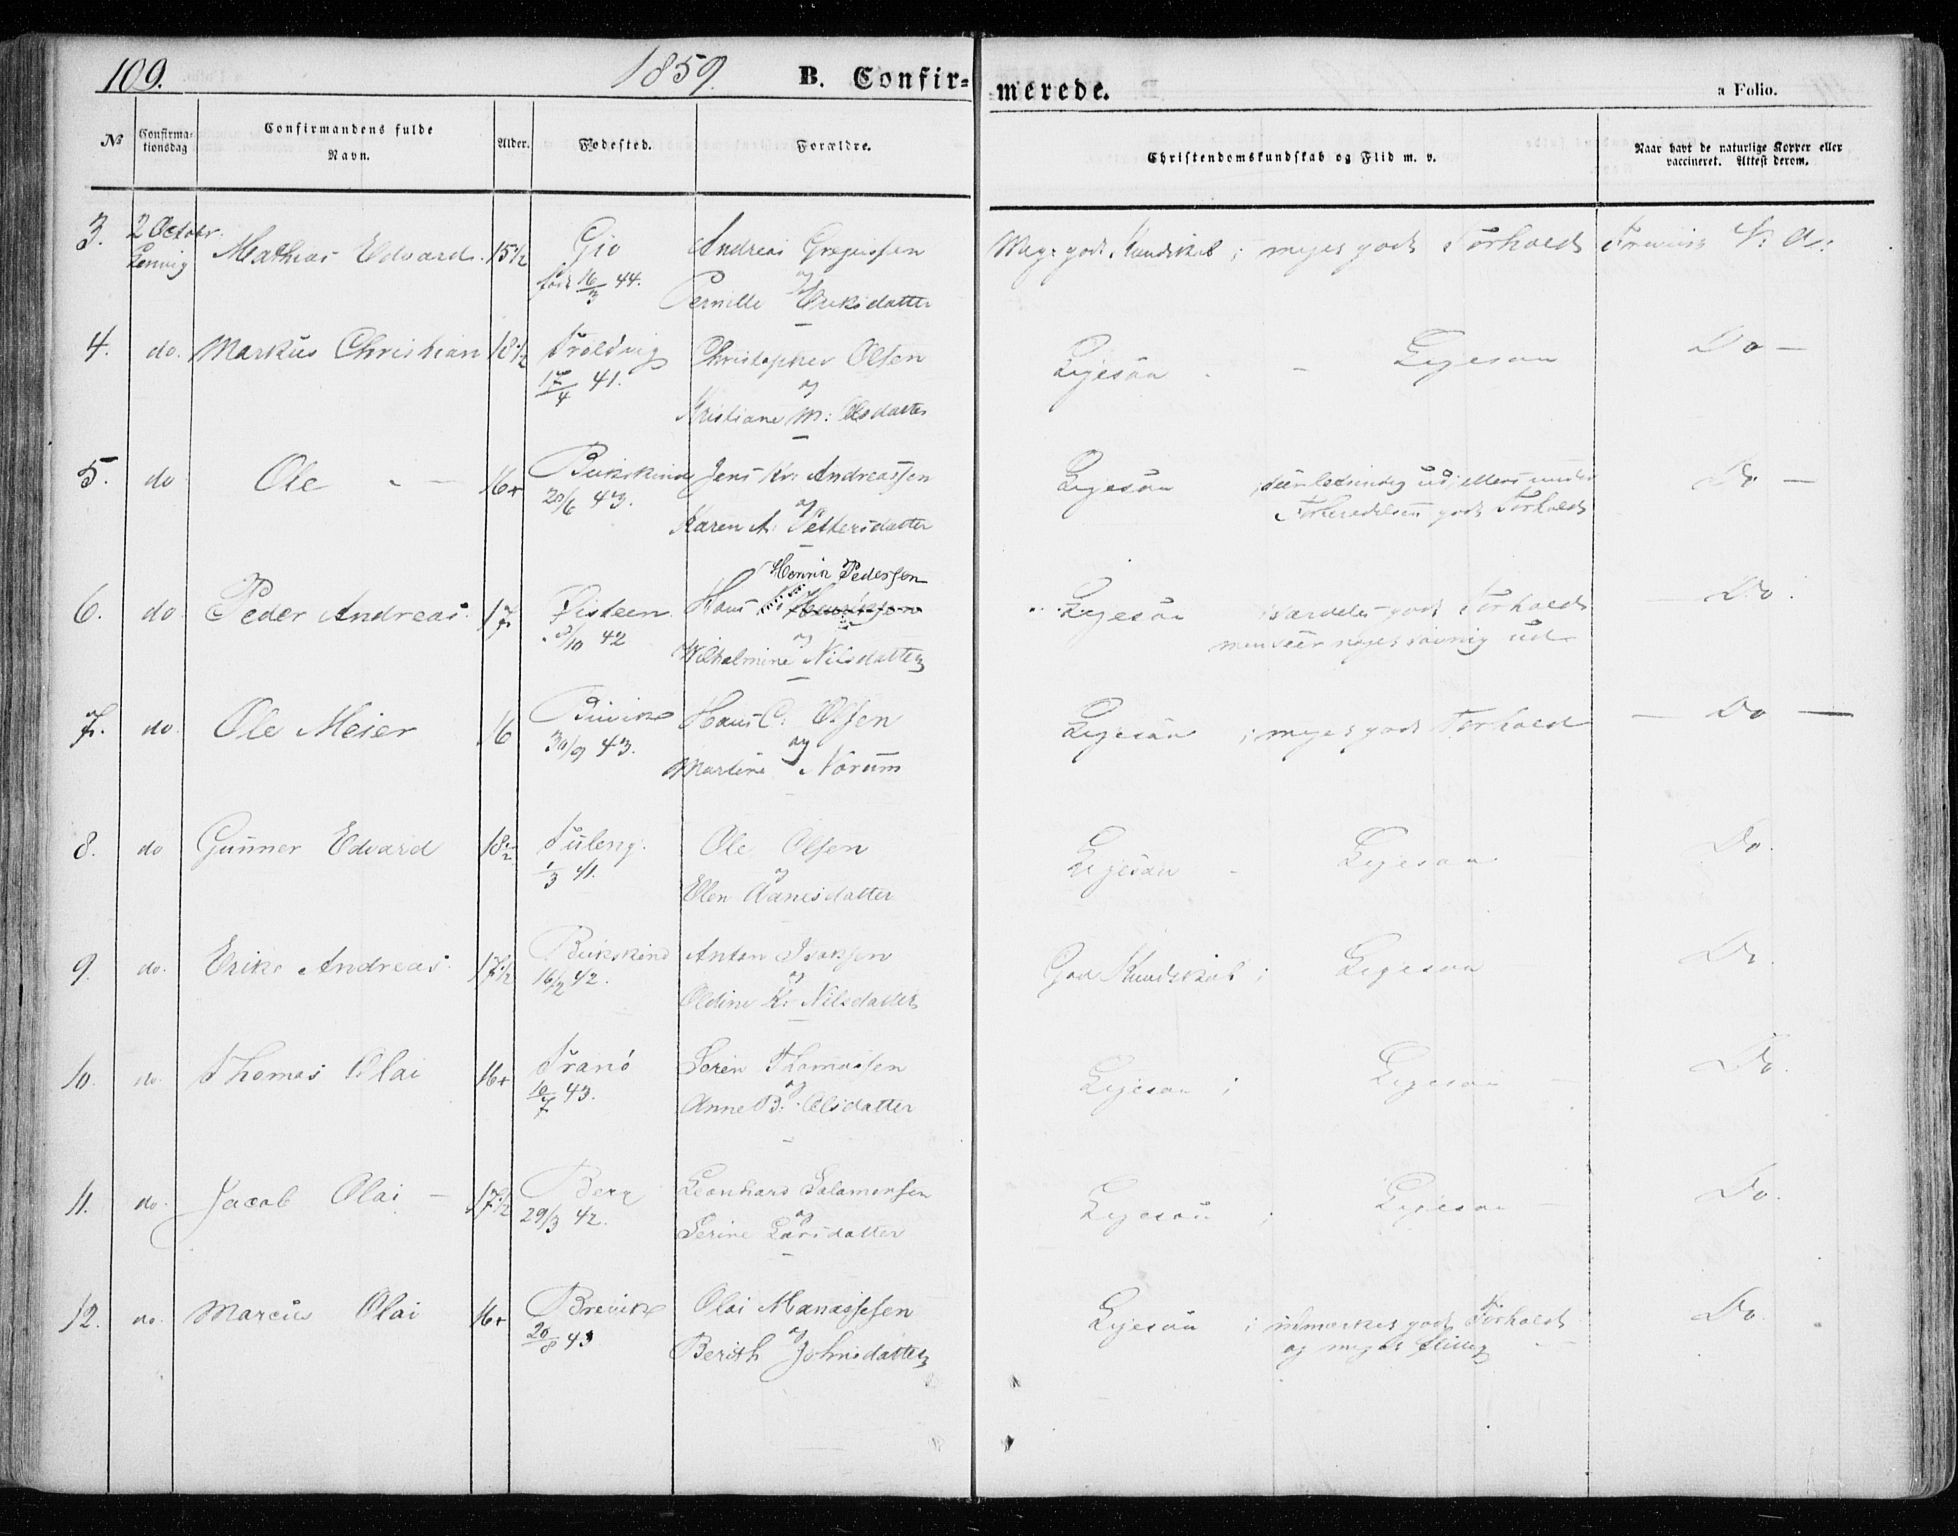 109.
1859.
B. Confir=
merede.
a Folio.
No
Confirma-
tionsdag
Confirmandens fulde
Navn.
Alder.
Fødested.
Forældre.
Christendomskundskab og Flid m. v.
Naar havt de naturlige Kopper eller
vaccineret. Attest derom.
3. 2 October Mathias Edvard. 15½ Gio Andreas Gregussen Meg: godt Kundskab; meget godt Forhold
Lenvig født 16/3 44. og
Pernille Eriksdatter
4. do. Markus Christian 18½ Troldvig Christopher Olsen Ligesaa - - Ligesaa Do -
17/4 41. og
Kristiane M: Olsdatter
5. do Ole - - 16+ Bukskind Jens Kr: Andreassen Ligesaa Do -
20/6 43. og
Karen A. Pettersdatter Forberedelsen godt Forhold
Henrik Pedersen
6. do Peder Andreas. 17 Fisteen Hans Ligesaa ; særdeles godt Forhold Do.
/10 42 og
Wilhalmine Nilsdatter
7. do. Ole Meier 16 Buvik Hans C: Olsen Ligesaa ; meget godt Forhold - Do -
30/9 43. og
Martine Norum
8. do Gunner Edvard 18½ Tuleng. Ole Olsen Ligesaa - Ligesaa Do.
1/3 41. og
Elen Hansdatter
9. do. Erik Andreas. 17½ Bukskind Anton Isaksen God Kundskab ; Ligesaa Do.
16/2 42. og
Oldine K: Nilsdatter
10. do. Thomas Olai 16+ Tranø Søren Thomassen Ligesaa ; Ligesaa - Do.
10/7 43. og
Anne B. Olsdatter
11. do. Jacob Olai - 17½ Berg Leonhard Salamonsen Ligesaa ; Ligesaa - Do.
29/3 42. og
Serine Larsdatter
12. do. Marcus Olai 16+ Brevik Olai Manassesen Ligesaa ; udmærket godt Forhold Do.
20/8 43 og og meget flittig
Berith Johnsdatter